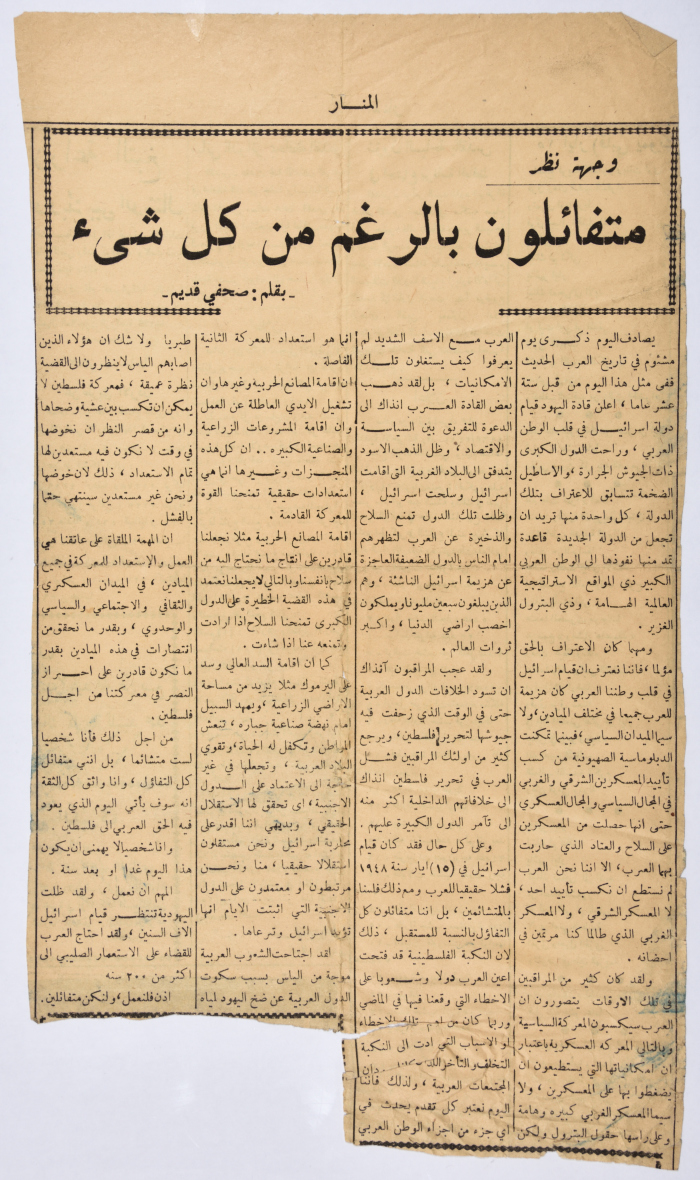 المنــار
وجهة نظر
متفائلون بالرغم من كل شىء
ـ بقلم : صحفي قديم ـ
يصادف اليوم ذكرى يوم
مشئوم في تاريخ العرب الحديث
ففى مثل هذا اليوم من قبل ستة
عشر عاما ، اعلن قادة اليهود قيام
دولة اسرائيل في قلب الوطن
العربي ، وراحت الدول الكبرى
ذات الجيوش الجرارة ، والاساطيل
الضخمة تتسابق للاعتراف بتلك
الدولة ، كل واحدة منها تريد ان
تجعل من الدولة الجديدة قاعدة
تمد منها نفوذها الى الوطن العربي
الكبير ذي المواقع الاستراتيجية
العالمية الهامة ، وذي البترول
الغزير .
ومهما كان الاعتراف بالحق
مؤلما ، فاننا نعترف ان قيام اسرائيل
في قلب وطننا العربي كان هزيمة
للعرب جميعا في مختلف الميادين ، ولا
سيما الميدان السياسي ، فبينما تمكنت
الدبلوماسية الصهيونية من كسب
تأييد المعسكرين الشرقي والغربي
في المجال السياسي والمجال العسكري
حتى انها حصلت من المعسكرين
على السلاح والعتاد الذي حاربت
بهما العرب ، الا اننا نحن العرب
لم نستطع ان نكسب تأييد احد ،
لا المعسكر الشرقي ، ولا المعسكر
الغربي الذي طالما كنا مرتمين في
احضانه .
ولقد كان كثير من المراقبين
في تلك الاوقات يتصورون ان
العرب سيكسبون المعركة السياسية
وبالتالي المعركه العسكرية باعتبار
ان امكانياتها التي يستطيعون ان
يضغطوا بها على المعسكرين ، ولا
سيما المعسكر الغربي كبيره وهامة
وعلى راسها حقول البترول ولكن
العرب مـع الاسف الشديد لم
يعرفوا كيف يستغلون تلـك
الامكانيات ، بل لقد ذهـب
بعض القادة العـرب انذاك الى
الدعوة للتفريق بين السياسة
والاقتصاد ، وظل الذهب الاسود
يتدفق الى البلاد الغربية التي اقامت
اسرائيل وسلحت اسرائيل ،
وظلت تلك الدول تمنع السلاح
والذخيرة عن العرب لتظهرهم
امام الناس بالدول الضعيفة العاجزة
عن هزيمة اسرائيل الناشئة ، وهم
الذين يبلغون سبعين مليونا ويملكون
اخصب اراضي الدنيا ، واكبر
ثروات العالم .
ولقد عجب المراقبون آنذاك
ان تسود الخلافات الدول العربية
حتى في الوقت الذي زحفت فيه
جيوشها لتحرير فلسطين ، ويرجع
كثير من اولئك المراقبين فشـل
العرب في تحرير فلسطين انذاك
الى خلافاتهم الداخلية اكثر منه
الى تآمر الدول الكبيرة عليهم .
وعلى كل حال فقد كان قيام
اسرائيل في (١٥) ايار سنة ١٩٤٨
فشلا حقيقيا للعرب ومع ذلك فلسنا
بالمتشائمين ، بل اننا متفائلون كل
التفاؤل بالنسبة للمستقبل ، ذلك
لان النكبة الفلسطينية قد فتحت
اعين العرب دولا وشـعوبا على
الاخطاء التي وقعنا فيها في الماضي
وربما كان من اهم تلك الاخطاء
او الاسباب التي ادت الى النكبة
التخلف والتأخر
المجتمعات العربية ، ولذلك فاننا
اليوم نعتبر كل تقدم يحدث في
اي جزء من اجزاء الوطن العربي
انما هو استعداد للمعركة الثانية
الفاصلة .
ان اقامة المصانع الحربية وغيرها وان
تشغيل الايدي العاطلة عن العمل
وان اقامة المشروعات الزراعية
والصناعية الكبيره .. ان كل هذه
المنجـزات وغـيرها انما هي
استعدادات حقيقية تمنحنا القوة
للمعركة القادمة .
اقامة المصانع الحربية مثلا نجعلنا
قادرين على انتاج ما نحتاج اليه من
سلاح بانفسنا وبالتالي لا يجعلنا نعتمد
في هذه القضية الخطيرة على الدول
الكبرى تمنحنا السلاح اذا ارادت
وتمنعه عنا اذا شاءت .
كما ان اقامة السد العالي وسد
على اليرموك مثلا يزيد من مساحة
الاراضي الزراعية ، ويمهد السبيل
امام نهضة صناعية جباره ، تنعش
المواطن وتكفل له الحياة ، وتقوي
البلاد العربية ، وتجعلها في غير
حاجة الى الاعتماد على الـدول
الاجنبية ، اى تحقق لها الاستقلال
الحقيقي ، وبديهي اننا اقدر على
محاربة اسرائيل ونحن مستقلون
استقلالا حقيقيا ، منا ونحـن
مرتبطون او معتمدون على الدول
الاجنبية التي اثبتت الايام انها
تؤيد اسرائيل وترعاها .
لقد اجتاحت الشعوب العربية
موجة من الياس بسبب سكوت
الدول العربية عن ضخ اليهود لمياه
طبريا ولا شك ان هؤلاء الذين
اصابهم الياس لا ينظرون الى القضية
نظرة عميقة ، فمعركة فلسطين لا
يمكن ان تكسب بين عشية وضحاها
وانه من قصر النظر ان نخوضها
في وقت لا نكون فيه مستعدين لها
تمام الاستعداد ، ذلك لان خوضها
ونحن غير مستعدين سينتهي حتما
بالفشل .
ان المهمة الملقاة على عاتقنا هي
العمل والإستعداد للمعركة في جميع
الميادين ، في الميدان العسكري
والثقافي والاجتماعي والسياسي
والوحدوي ، وبقدر ما نحقق من
انتصارات في هذه الميادين بقدر
ما نكون قادرين على احـراز
النصر في معركتنا من اجـل
فلسطين .
من اجل ذلك فأنا شخصيا
لست متشائما ، بل انني متفائل
كل التفاؤل ، وانا واثق كل الثقة
انه سوف يأتي اليوم الذي يعود
فيه الحق العربي الى فلسطين .
وانا شخصيا لا يهمنى ان يكون
هذا اليوم غدا او بعد سنة .
المهم ان نعمل ، ولقد ظلت
اليهودية تنتظـر قيام اسرائيل
الاف السنين ، ولقد احتاج العرب
للقضاء على الاستعمار الصليبى الى
اكثر من ٢٠٠ سنه
اذن فلنعمل ، ولنكن متفائلين .